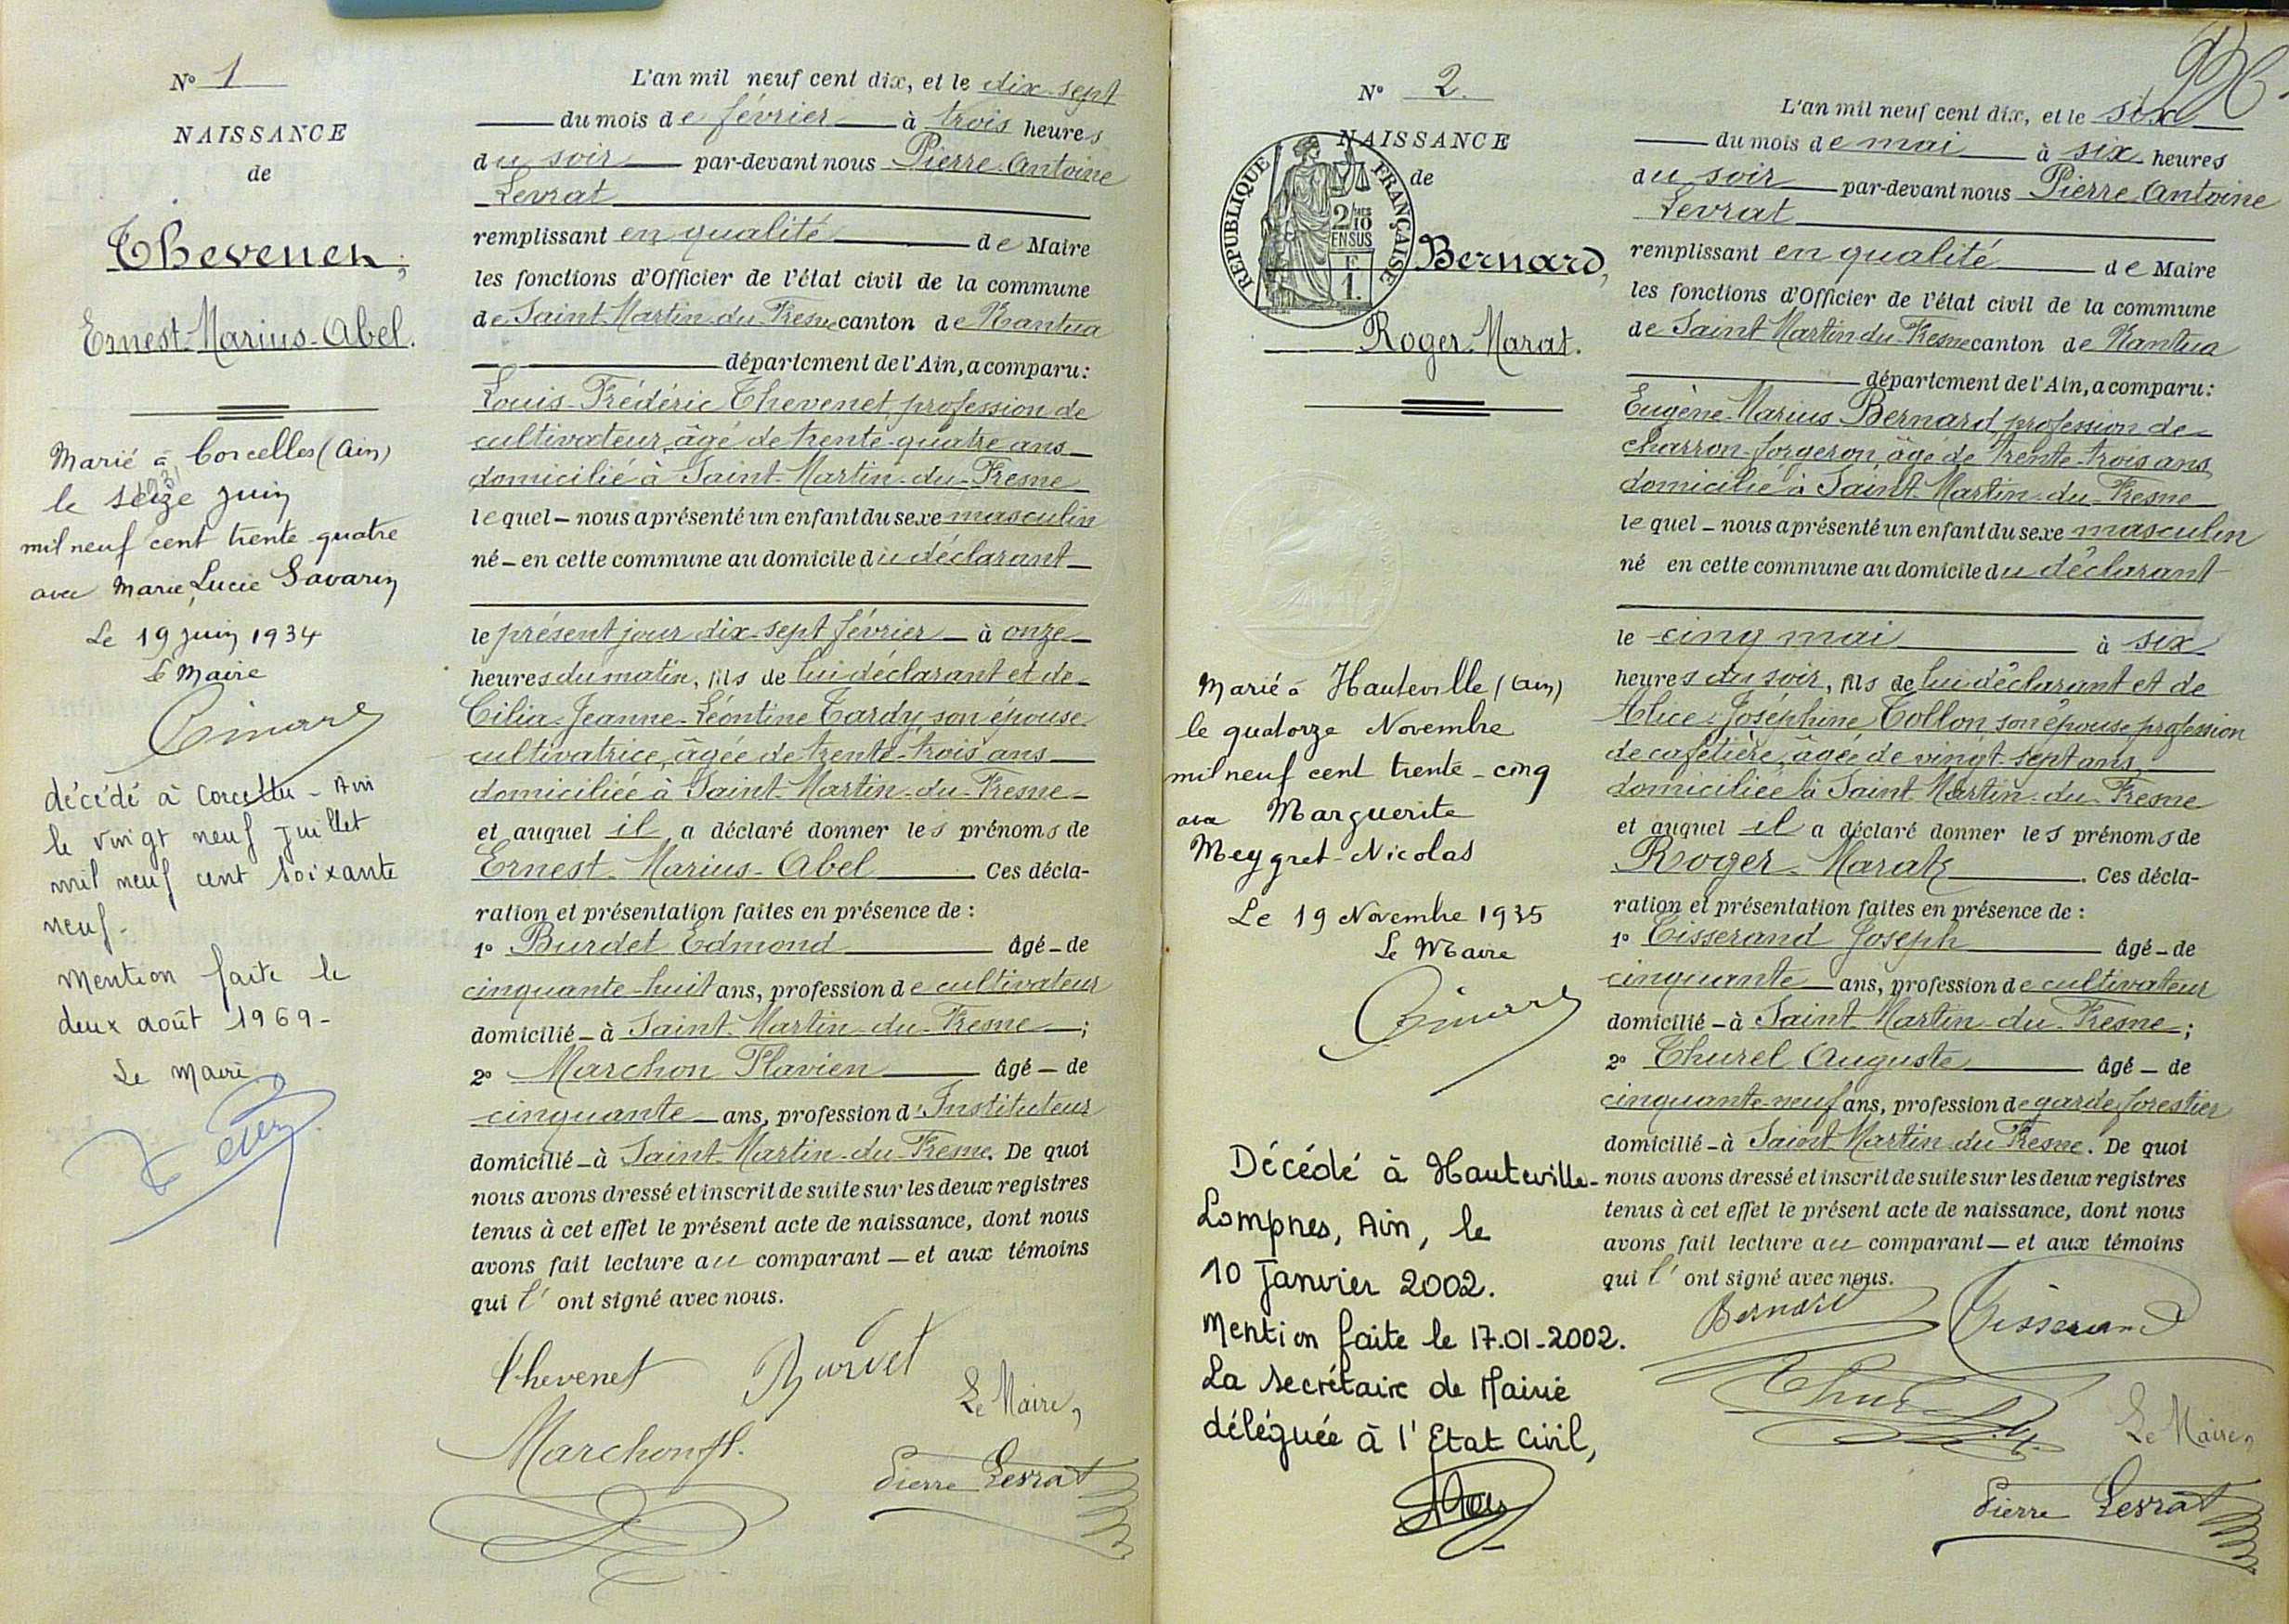 N° 1
NAISSANCE
de
Thevenet,
Ernest-Marius-Abel.
Marié à Corcelles (Ain)
le seize juin
mil neuf cent trente-quatre
avec Marie Lucie Savarin
Le 19 juin 1934
Le Maire
décédé à Corcelles - Ain
le vingt neuf juillet
mil neuf cent soixante
neuf-
Mention faite le
deux août 1969-
Le Maire
L'an mil neuf cent dix, et le dix-sept
du mois de février à trois heures
du soir par-devant nous Pierre-Antoine
Levrat
remplissant en qualité de Maire
les fonctions d'Officier de l'état civil de la commune
de Saint-Martin-du-Fresne canton de Nantua
département de l'Ain, a comparu:
Louis-Frédéric Thevenet, profession de
cultivateur, âgé de trente-quatre ans
domicilié à Saint-Martin-du-Fresne
lequel – nous a présenté un enfant du sexe masculin
né – en cette commune au domicile du déclarant
le présent jour dix-sept février à onze
heures du matin, fils de lui déclarant et de
Cilia-Jeanne-Léontine Tardy, son épouse
cultivatrice, âgée de trente-trois ans
domiciliée à Saint-Martin-du-Fresne
et auquel il a déclaré donner les prénoms de
Ernest-Marius-Abel Ces décla-
ration et présentation faites en présence de :
1° Burdet Edmond âgé – de
cinquante-huit ans, profession de cultivateur
domicilié – à Saint-Martin-du-Fresne ;
2° Marchon Flavien âgé – de
cinquante ans, profession d'Instituteur
domicilié – à Saint-Martin-du-Fresne. De quoi
nous avons dressé et inscrit de suite sur les deux registres
tenus à cet effet le présent acte de naissance, dont nous
avons fait lecture au comparant – et aux témoins
qui l'ont signé avec nous.
Thevenet Burdet
Le Maire,
Marchon fl.
Pierre Levrat
N° 2.
NAISSANCE
de
RÉPUBLIQUE FRANÇAISE
2/10
EN SUS
F
1.
Bernard,
Roger-Marat.
Marié à Hauteville (Ain)
le quatorze Novembre
mil neuf cent trente-cinq
avec Marguerite
Meygret-Nicolas
Le 19 Novembre 1935
Le Maire
Décédé à Hauteville-
Lompnes, Ain, le
10 Janvier 2002.
Mention faite le 17.01-2002.
La secrétaire de Mairie
déléguée à l'Etat Civil,
L'an mil neuf cent dix, et le six
du mois de mai à six heures
du soir par-devant nous Pierre-Antoine
Levrat
remplissant en qualité de Maire
les fonctions d'Officier de l'état civil de la commune
de Saint-Martin-du-Fresne canton de Nantua
département de l'Ain, a comparu:
Eugène-Marius Bernard, profession de
charron-forgeron, âgé de trente-trois ans
domicilié à Saint-Martin-du-Fresne
lequel – nous a présenté un enfant du sexe masculin
né en cette commune au domicile du déclarant
le cinq mai à six
heures du soir, fils de lui déclarant et de
Alice-Joséphine Collon, son épouse profession
de cafetière, âgée de vingt-sept ans
domiciliée à Saint-Martin-du-Fresne
et auquel il a déclaré donner les prénoms de
Roger-Marat. Ces décla-
ration et présentation faites en présence de :
1° Tisserand Joseph âgé – de
cinquante ans, profession de cultivateur
domicilié – à Saint-Martin-du-Fresne ;
2° Thurel Auguste âgé – de
cinquante-neuf ans, profession de garde forestier
domicilié – à Saint-Martin-du-Fresne. De quoi
nous avons dressé et inscrit de suite sur les deux registres
tenus à cet effet le présent acte de naissance, dont nous
avons fait lecture au comparant – et aux témoins
qui l'ont signé avec nous.
Bernard Tisserand
Thurel
Le Maire,
Pierre Levrat